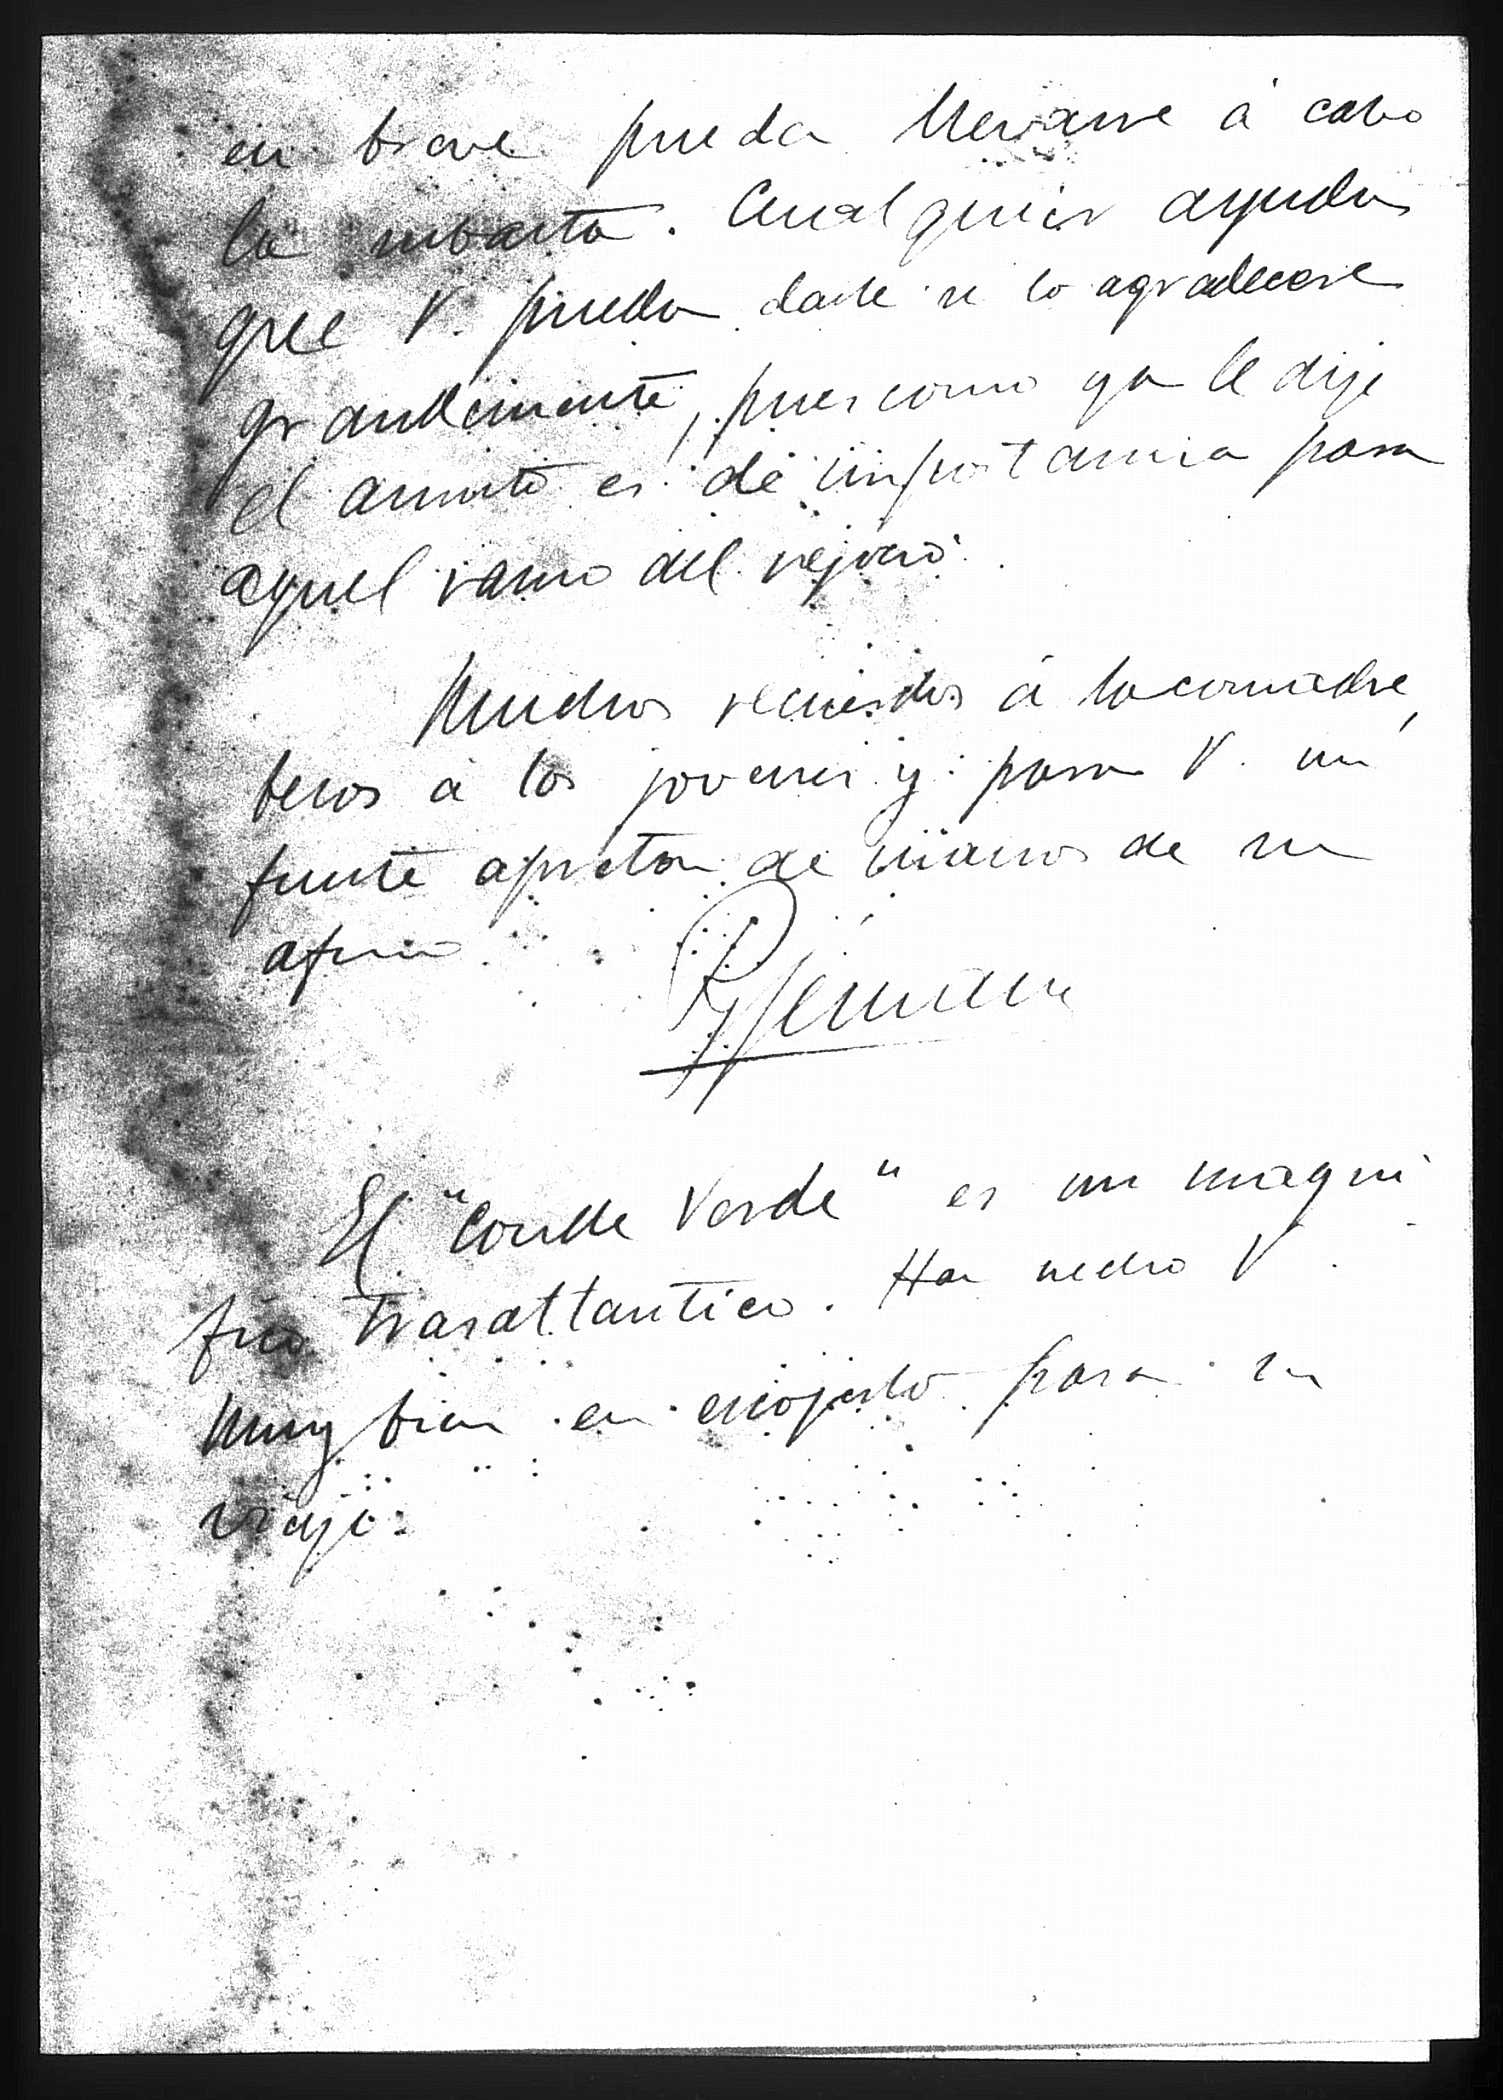 en breve pueda llevarse á cabo
la subasta. Cualquier ayuda
que V. pueda darle se lo agradeceré
grandemente, pues como ya le dije
el asunto es de importancia para
aquel ramo del negocio.
Muchos recuerdos á la comadre,
besos a los jovenes y para V. un
fuerte apreton de manos de su
afmo
El "Conde Verde" es un magni
fico trasatlantico. Ha hecho V.
muy bien en escojerlo para su
viaje.